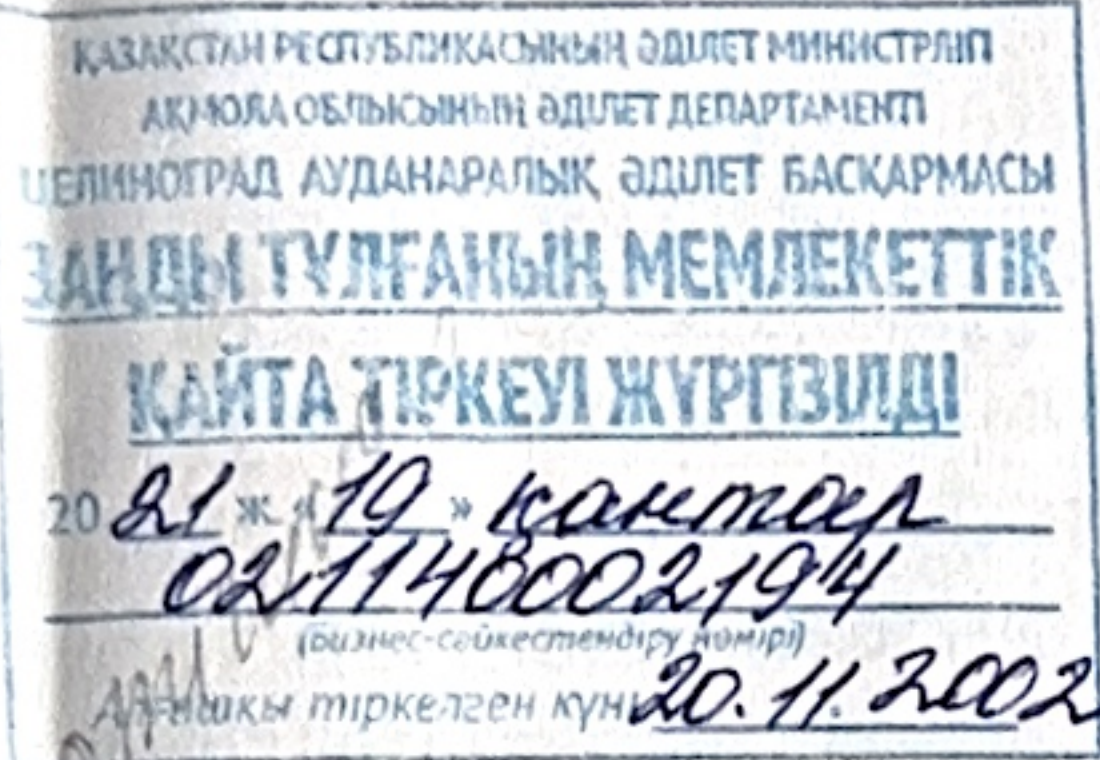 ҚАЗАҚСТАН РЕСПУБЛИКАСЫНЫҢ ӘДІЛЕТ МИНИСТРЛІГІ
АҚМОЛА ОБЛЫСЫНЫҢ ӘДІЛЕТ ДЕПАРТАМЕНТІ
ЦЕЛИНОГРАД АУДАНАРАЛЫҚ ӘДІЛЕТ БАСҚАРМАСЫ
ЗАҢДЫ ТҰЛҒАНЫҢ МЕМЛЕКЕТТІК
ҚАЙТА ТІРКЕУІ ЖҮРГІЗІЛДІ
20 21 ж «19» қантар
021140002194
(бизнес-сәйкестендіру нөмірі)
Алғашқы тіркелген күні 20.11.2002